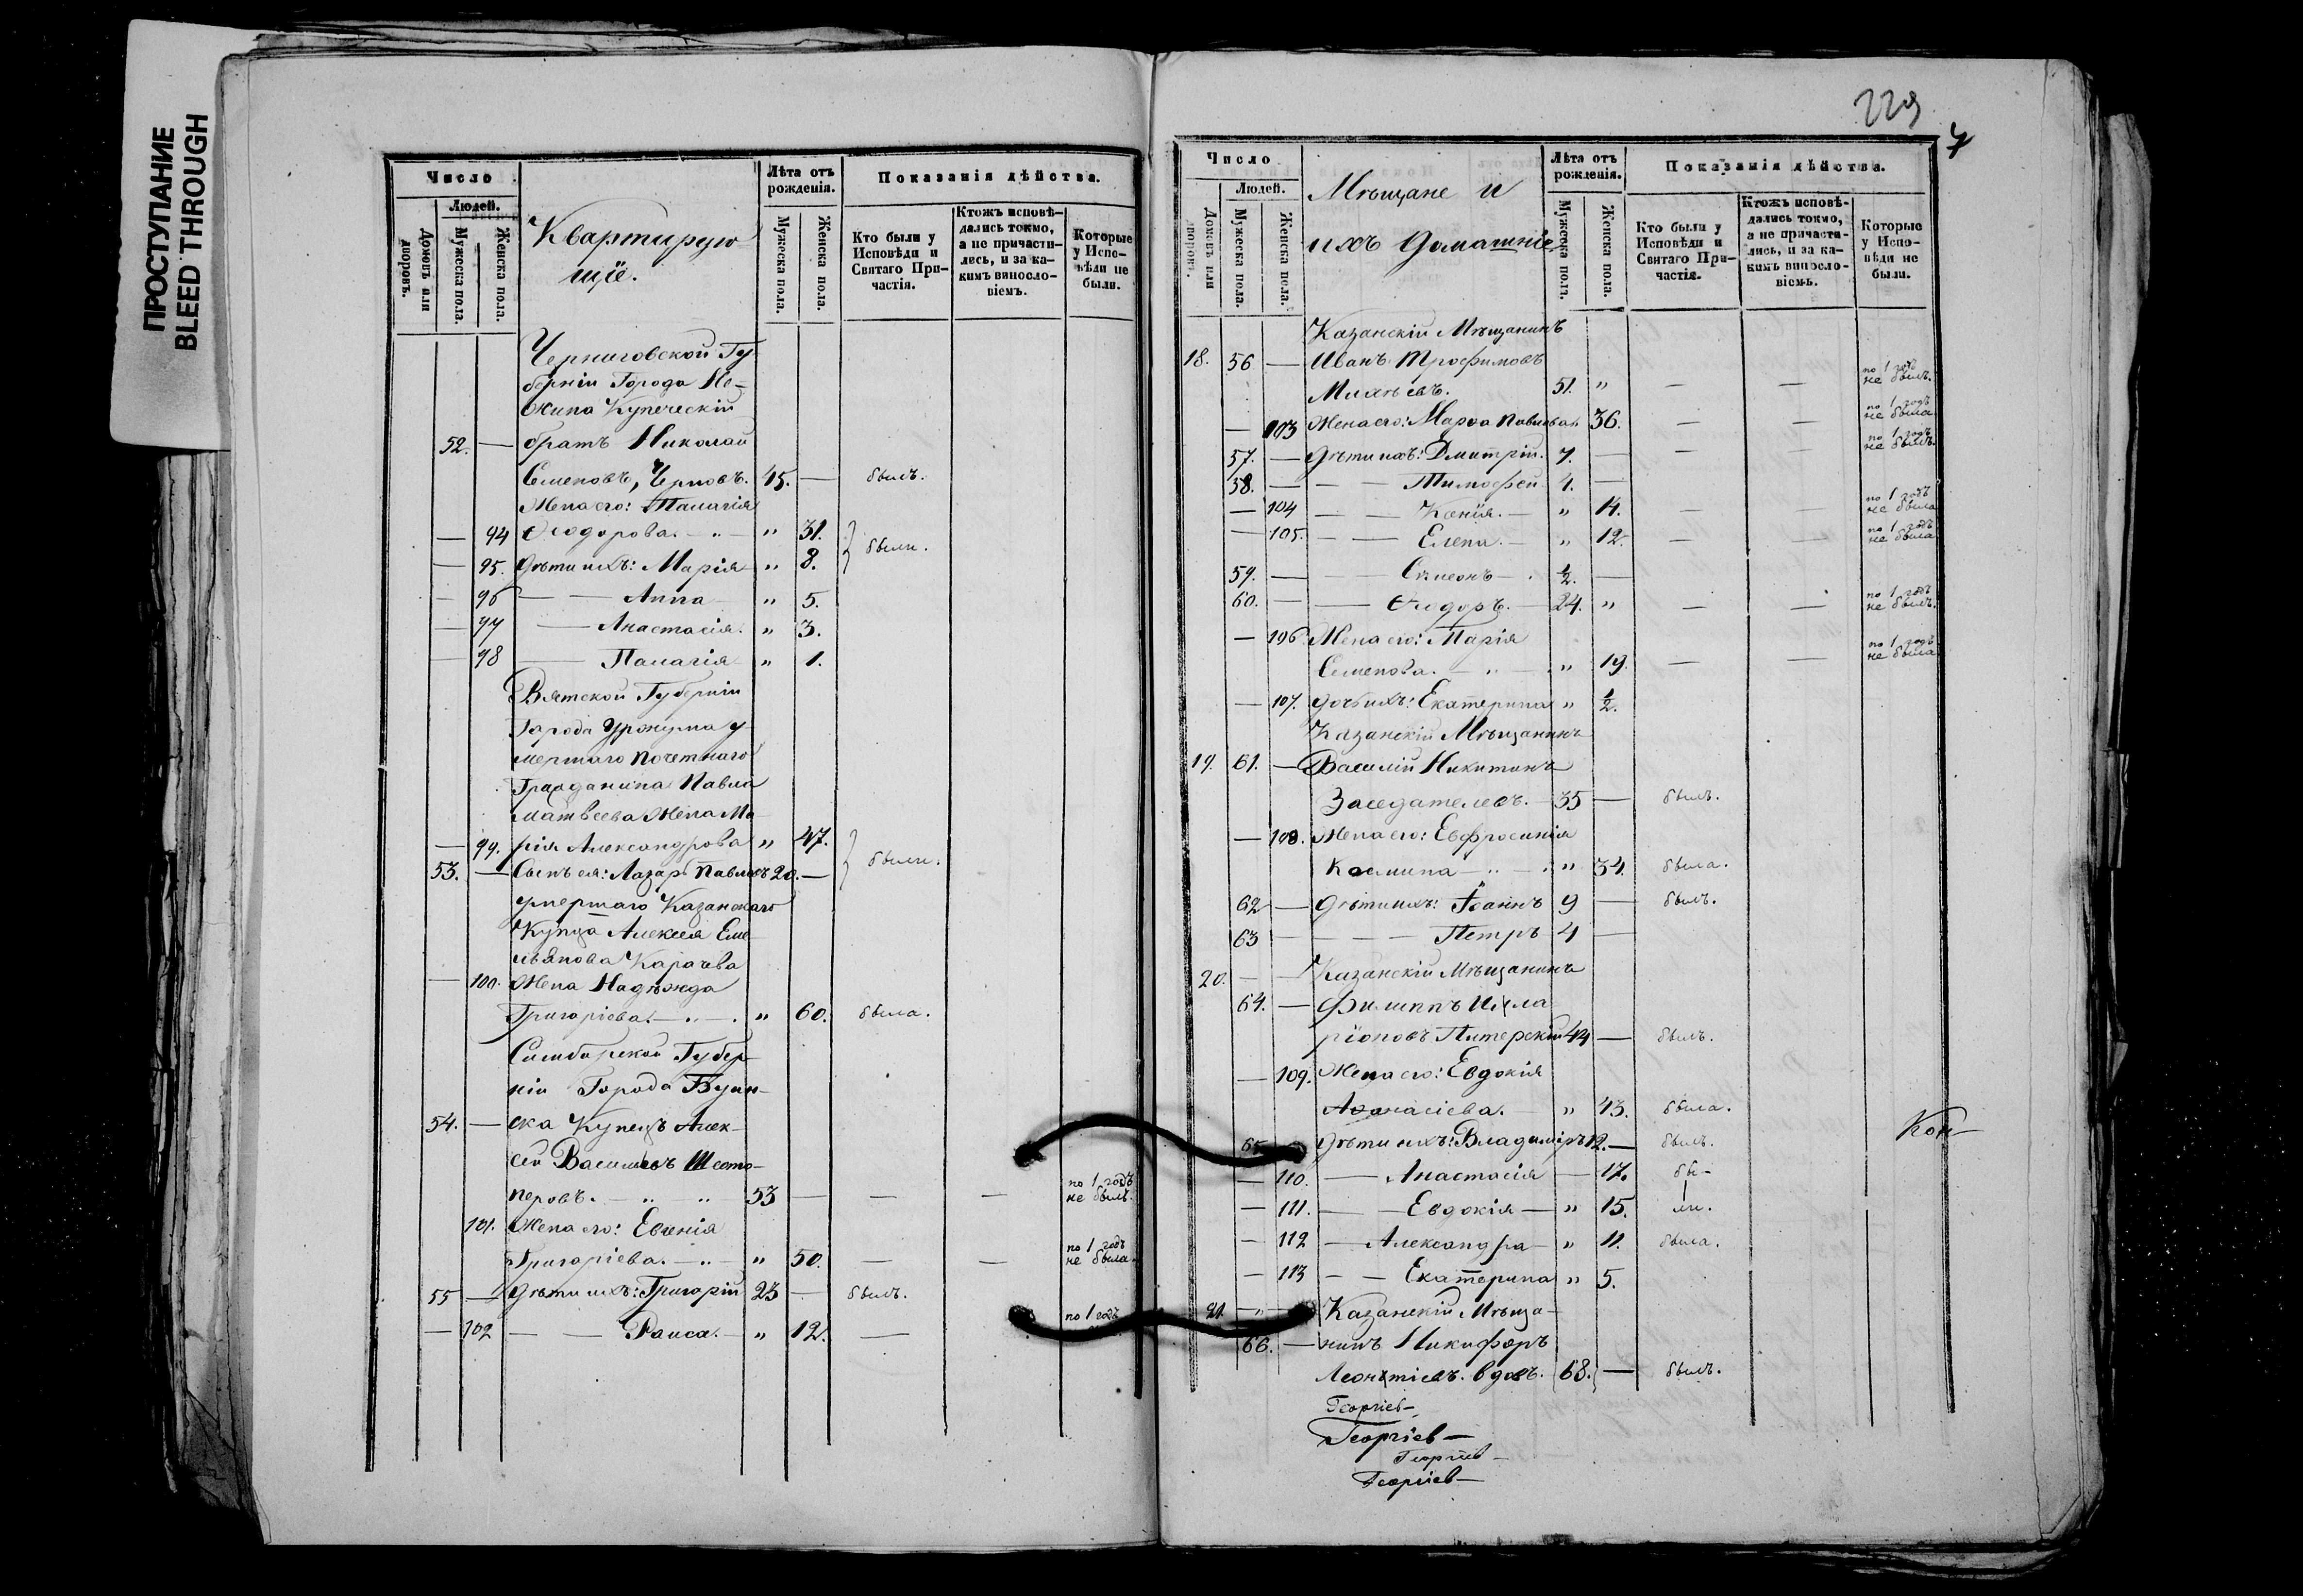 ПРОСТУПАНИЕ
BLEED THROUGH
Число
Людей.
Домовъ или дворовъ.
Мужеска пола.
Женска пола.
Квартирую
щіе.
Лѣта отъ рожденія.
Мужеска пола.
Женска пола.
Показанія дѣйства.
Кто были у Исповѣди и Святаго Причастія.
Ктожъ исповѣдались токмо, а не причастились, и за какимъ винословіемъ.
Которые у Исповѣди не были.
Черниговской Гу-
берніи Города Не-
жина Купеческій
52. — братъ Николай
Семеновъ, Черновъ. 45. — былъ.
Жена его: Палагія
— 94 Ѳеодорова. — „ — „ 31. были.
— 95. Дѣти ихъ: Марія „ 8.
— 96 — — Анна — „ 5.
— 97 — Анастасія. „ 3.
— 98 — Палагія „ 1.
Вятской Губерніи
Города Уржума у-
мершаго почетнаго
Гражданина Павла
Матвѣева Жена Ма-
— 99. рія Александрова „ 47. были.
53. — Сынъ ея: Лазарь Павловъ 20. —
умершаго Казанскаго
Купца Алексея Еме-
льянова Карачева
— 100. Жена Надѣжда
Григоріева. — „ — . „ 60. была.
Симбирской Губер-
ніи Города Буин-
54. — ска Купецъ Алек-
сей Васильевъ Шесто-
перовъ. — „ „ 53 — — — по 1 годъ не былъ.
101. Жена его: Евгенія
Григоріева. — „ — „ 50. — — по 1 годъ не была.
55 — Дѣти ихъ: Григорій 23 — былъ.
— 102 — — Раиса. — „ 12. — по 1 годъ
229
7
Число
Людей.
Домовъ или дворовъ.
Мужеска пола.
Женска пола.
Мѣщане и
ихъ домашніе
Лѣта отъ рожденія.
Мужеска пола.
Женска пола.
Показанія дѣйства.
Кто были у Исповѣди и Святаго Причастія.
Ктожъ исповѣдались токмо, а не причастились, и за какимъ винословіемъ.
Которые у Исповѣди не были.
Казанскій Мѣщанинъ
18. 56 — Иванъ Трофимовъ
Михѣевъ. 51. „ — — по 1 годъ не былъ.
— 103 Жена его: Марѳа Павлова „ 36. — — по 1 годъ не была
57. — Дѣти ихъ: Дмитрій. 7. — — — по 1 годъ не былъ.
58. — — — Тимофей 4. —
— 104 — — Ксенія. — „ 14. — — по 1 годъ не была
— 105. — — Елена. — „ 12. — — по 1 годъ не была
59. — — Симеонъ — . ½. —
60. — — Ѳеодоръ. — 24. „ — — по 1 годъ не былъ.
— 106. Жена его: Марія
Семенова. — „ — . „ 19. — — по 1 годъ не была
— 107. Дочь ихъ: Екатерина „ ½.
Казанскій Мѣщанинъ
19. 61. — Василій Никитинъ
Заседателевъ. — 35 — былъ.
— 108. Жена его: Евфросинія
Космина — „ — . „ 34. была.
62 — Дѣти ихъ: Іоаннъ 9 — былъ.
63 — — — Петръ 4 —
20. — — Казанскій Мѣщанинъ
64. — Филиппъ Ила
ріоновъ Питерскій 44 — былъ.
— 109. Жена его: Евдокія
Аѳанасіева. — „ 43. была.
65 — Дѣти ихъ: Владиміръ 12. — былъ.
— 110. — Анастасія — 17. бы-
— 111. — — Евдокія — „ 15. ли.
— 112 — Александра — „ 11. была.
— 113 — — Екатерина „ 5.
21. — „ — Казанскій Мѣща-
66. — нинъ Никифоръ
Леонтіевъ. вдовъ. 68. — былъ.
Георгіев—
Георгіев—
Георгіев—
Георгіев—
Кон—